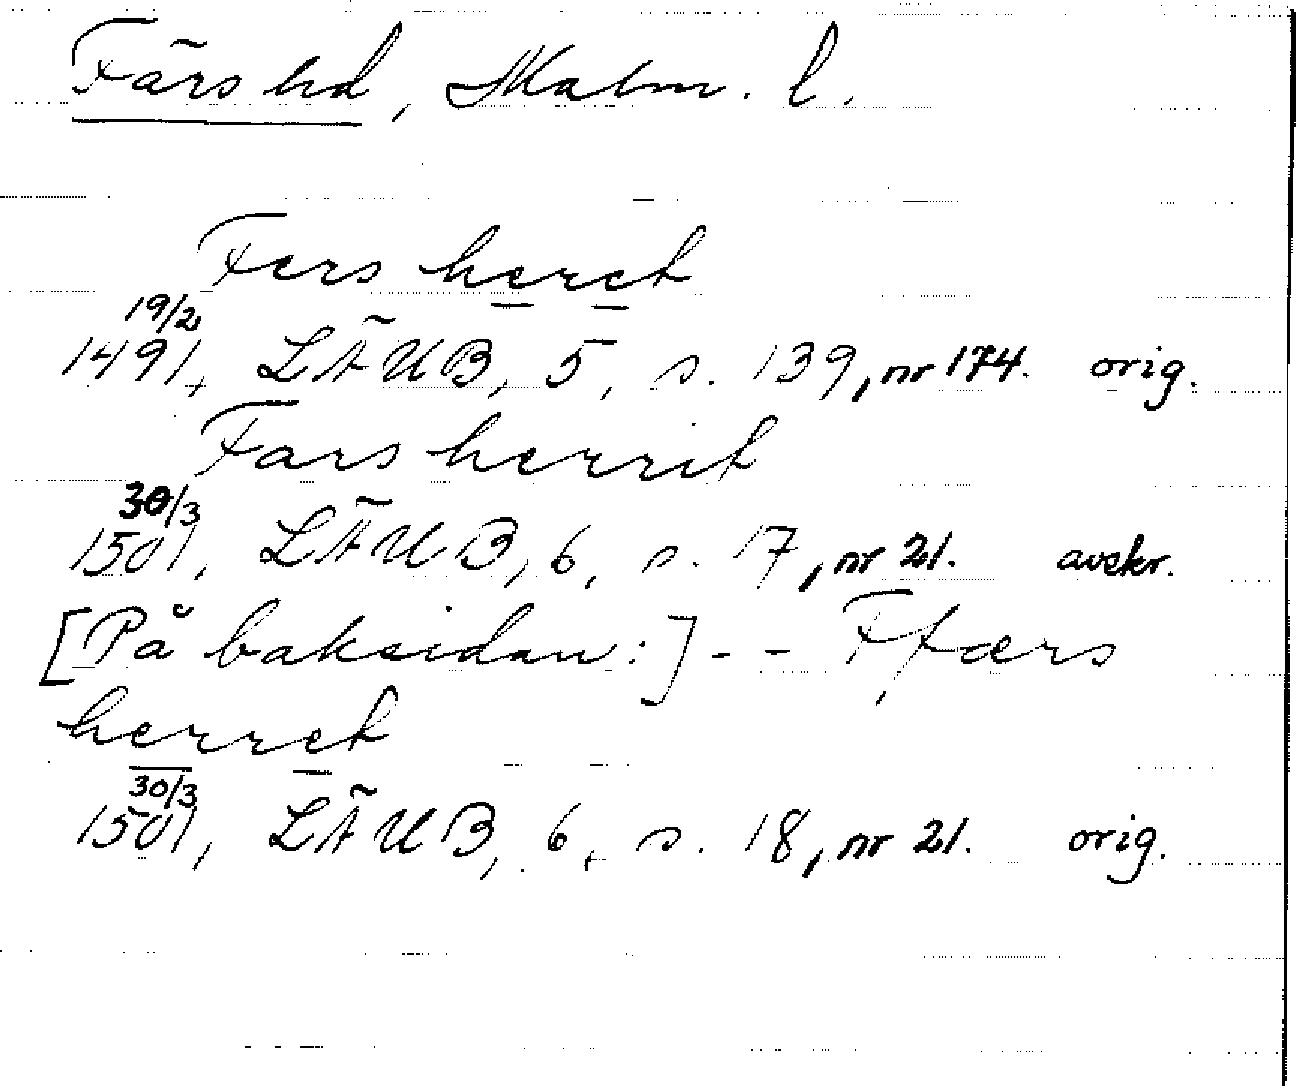 Färs hd, Malm. l.
Fers heret
19/2
1491, LÄUB, 5, s. 139, nr 174. orig.
Fars herrit
30/3
1501, LÄUB, 6, s. 17, nr 21. avskr.
[På baksidan:] - - Ffærs
herret
30/3
1501, LÄUB, 6, s. 18, nr 21. orig.